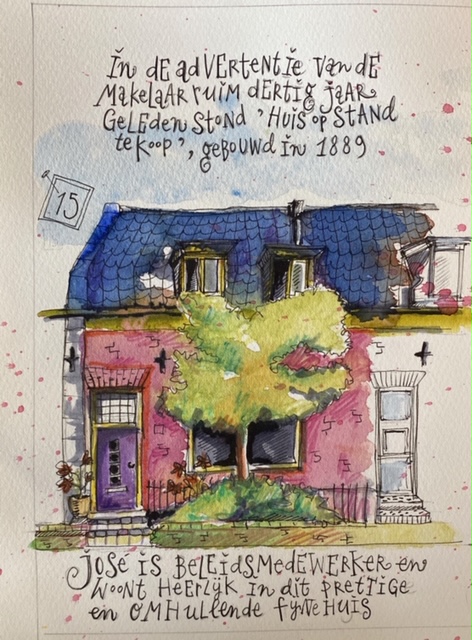 in de advertentie van de
makelaar ruim dertig jaar
geleden stond 'Huis op stand
te koop', gebouwd in 1889
15
José is beleidsmedewerker en
woont heerlijk in dit prettige
en omhullende fijne huis